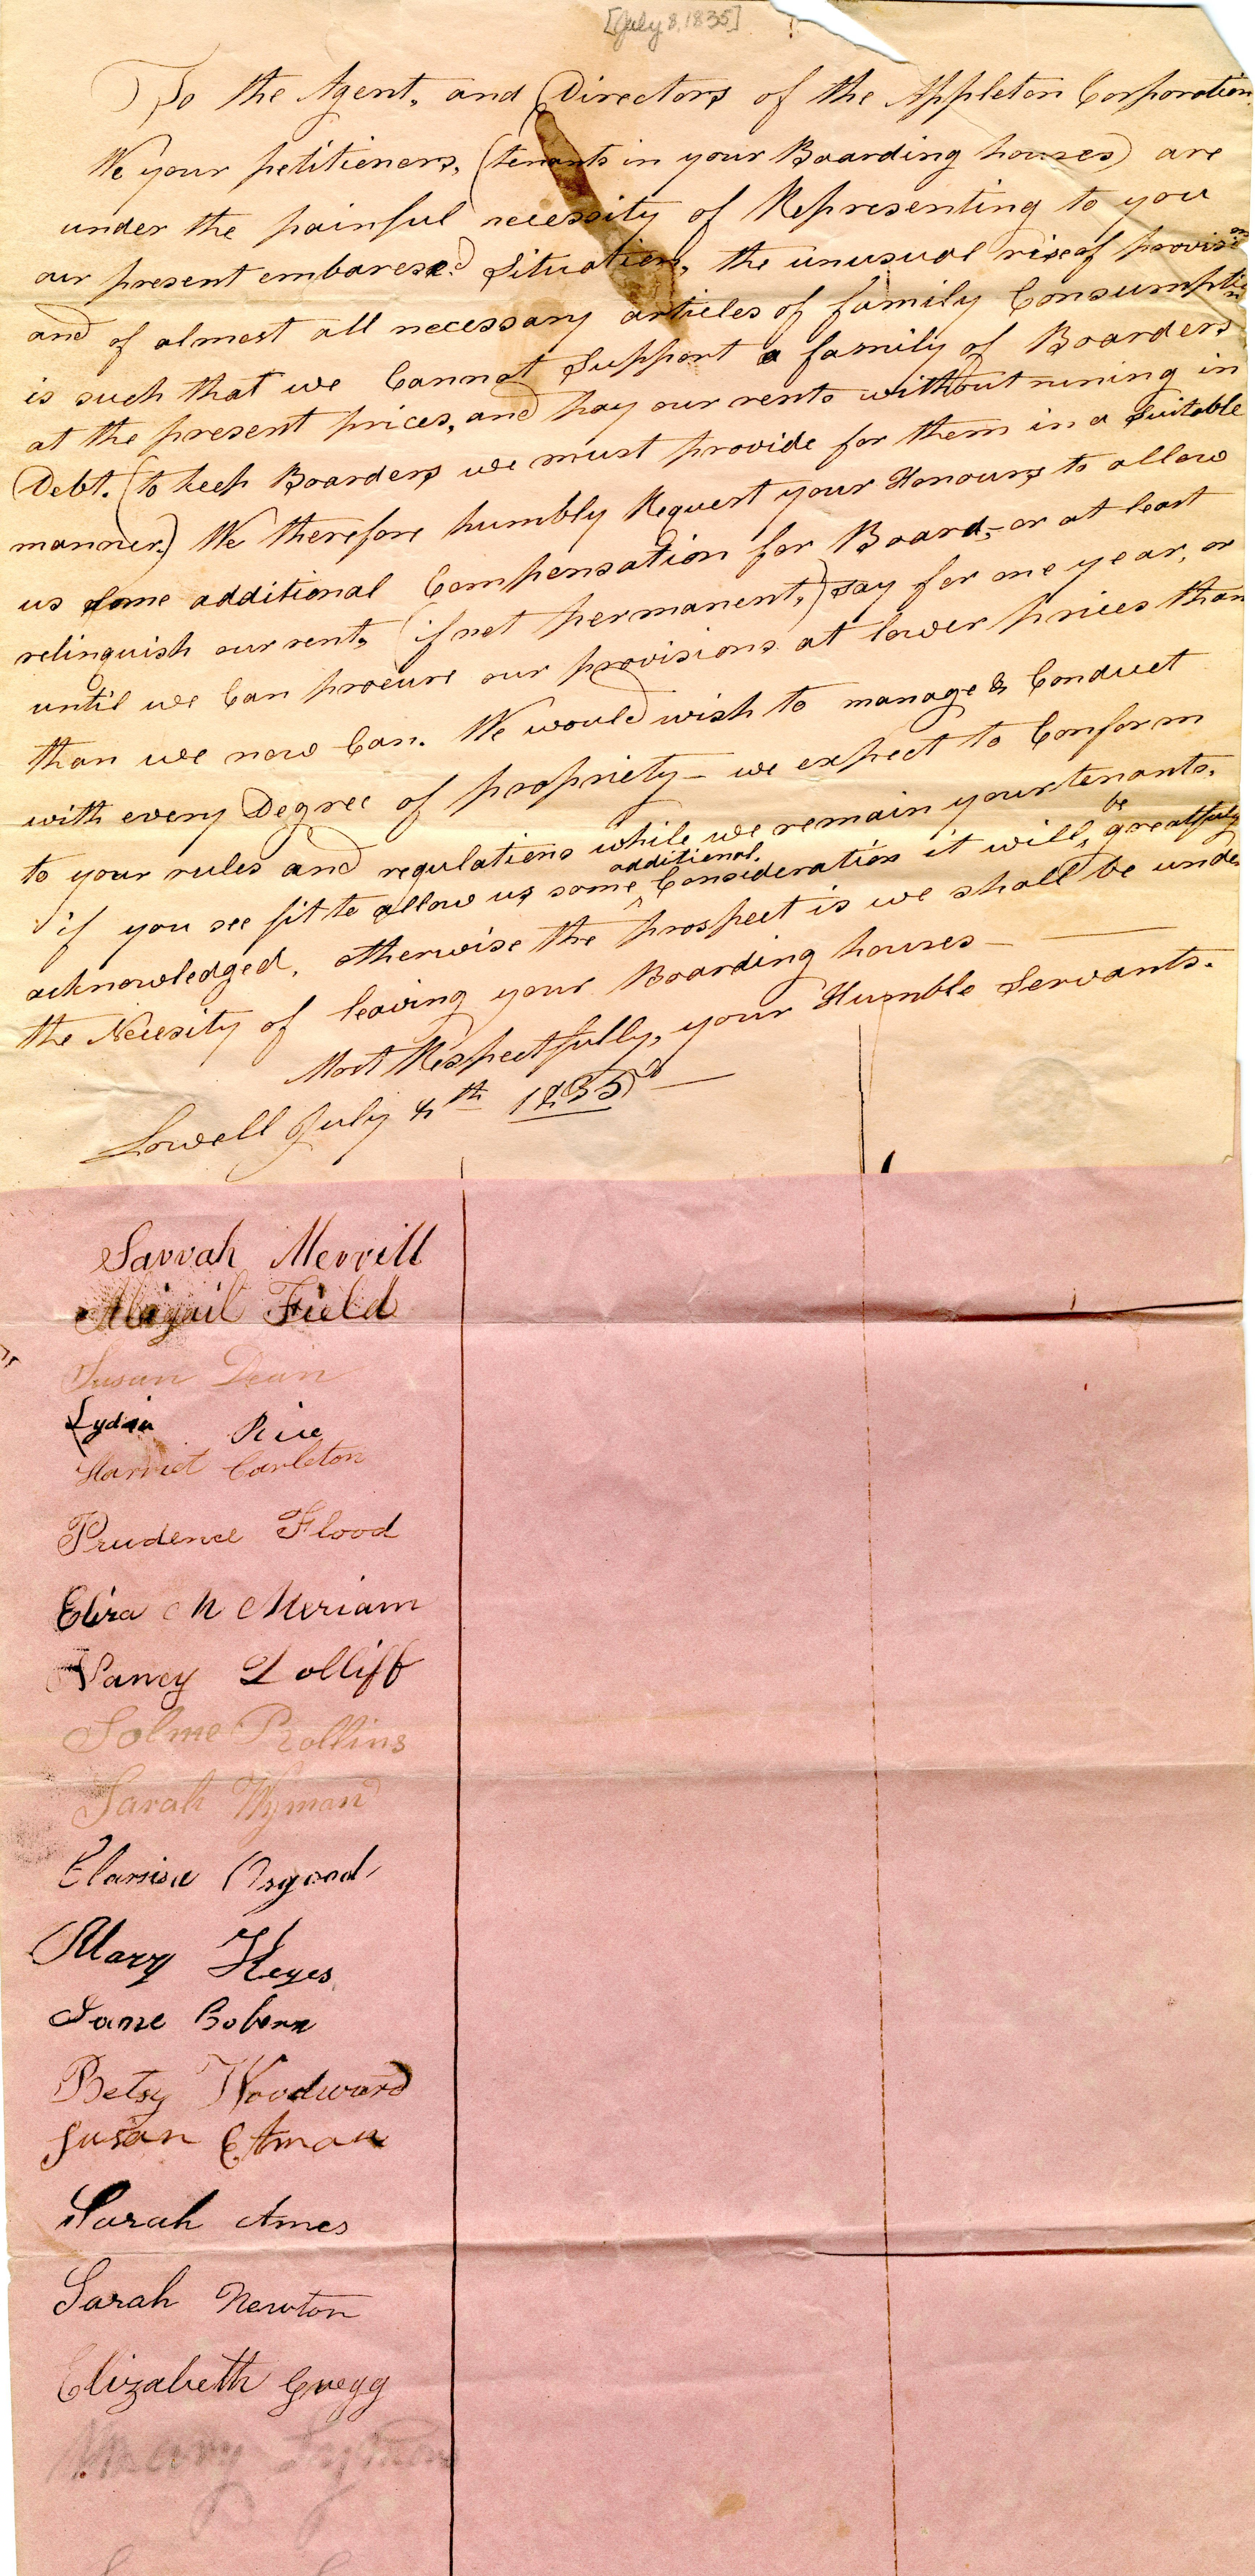 [July 8, 1835]
To the Agent, and Directors of the Appleton Corporation
We your petitioners, (tenants in your Boarding houses) are
under the painful necessity of Representing to you
our present embaresed Situation, the unusual rise of provision
and of almost all necessary articles of family Consumption
is such that we Cannot Support a family of Boarders
at the present prices, and pay our rents without runing in
Debt. (to keep Boarders we must provide for them in a Suitable
manner.) We therefore humbly Request your Honours to allow
us some additional Compensation for Board,- or at least
relinquish our rent, (if not permanent,) say for one year, or
until we Can procure our provisions at lower prices than
than we now Can. We would wish to manage & Conduct
with every Degree of propriety - we expect to Conform
to your rules and regulations while we remain your tenants.
if you see fit to allow us some additional Consideration it will be greatfuly
acknowledged, otherwise the prospect is we shall be under
the Necesity of leaving your Boarding houses —
Most Respectfully, your Humble Servants.
Lowell July 8th 1835
Sarrah Merrill
Abigail Field
Susan Dean
Lydia Rice
Harriet Carleton
Prudence Flood
Eliza M Meriam
Nancy Lolliff
Solme Rollins
Sarah Wyman
Clarisa Osgood
Mary Keyes
Jane Coburn
Betsy Woodward
Susan
Sarah Ames
Sarah Newton
Elizabeth Gregg
Mary